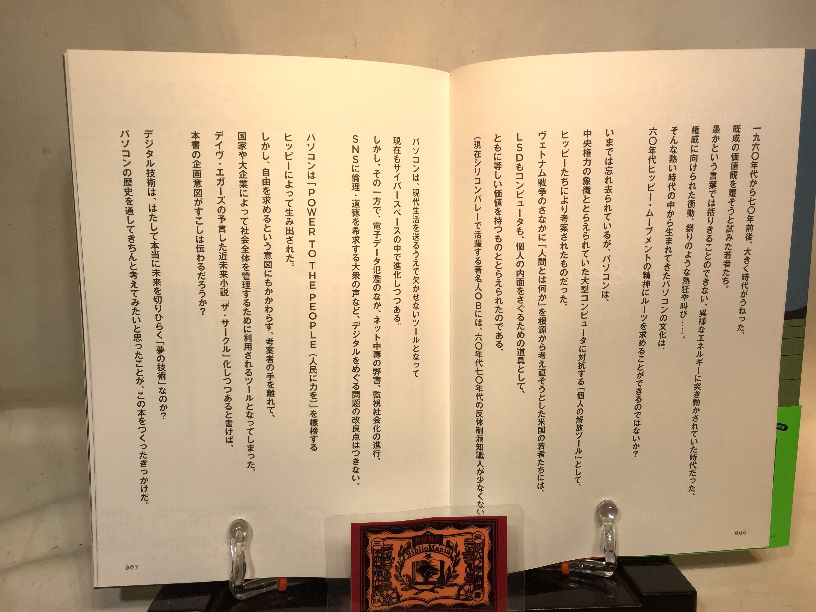 一九六〇年代から七〇年前後、大きく時代がうねった。
既成の価値観を覆そうと試みた若者たち。
愚かという言葉では括りきることのできない、異様なエネルギーに突き動かされていた時代だった。
権威に向けられた衝動、祭りのような熱狂や叫び……。
そんな熱い時代の中から生まれてきたパソコンの文化は、
六〇年代ヒッピー・ムーブメントの精神にルーツを求めることができるのではないか?
いまでは忘れ去られているが、パソコンは、
中央権力の象徴ととらえられていた大型コンピュータに対抗する「個人の解放ツール」として、
ヒッピーたちにより考案されたものだった。
ヴェトナム戦争のさなかに「人間とは何か」を根源から考え直そうとした米国の若者たちには、
LSDもコンピュータも、個人の内面をさぐるための道具として、
ともに等しい価値を持つものととらえられたのである。
(現在シリコンバレーで活躍する著名人OBには、六〇年代七〇年代の反体制派知識人が少なくない
006
パソコンは、現代生活を送るうえで欠かせないツールとなって
現在もサイバースペースの中で進化しつつある。
しかし、その一方で、電子データ氾濫のなか、ネット中毒の弊害、監視社会化の進行、
SNSに倫理・道徳を希求する大衆の声など、デジタルをめぐる問題の改良点はつきない。
パソコンは「POWER TO THE PEOPLE(人民に力を)」を標榜する
ヒッピーによって生み出された。
しかし、自由を求めるという意図にもかかわらず、考案者の手を離れて、
国家や大企業によって社会全体を管理するために利用されるツールとなってしまった。
デイヴ・エガーズの予言した近未来小説『ザ・サークル』化しつつあると書けば、
本書の企画意図がすこしは伝わるだろうか?
デジタル技術は、はたして本当に未来を切りひらく「夢の技術」なのか?
パソコンの歴史を通してきちんと考えてみたいと思ったことが、この本をつくったきっかけだ。
007
Biblio Mania